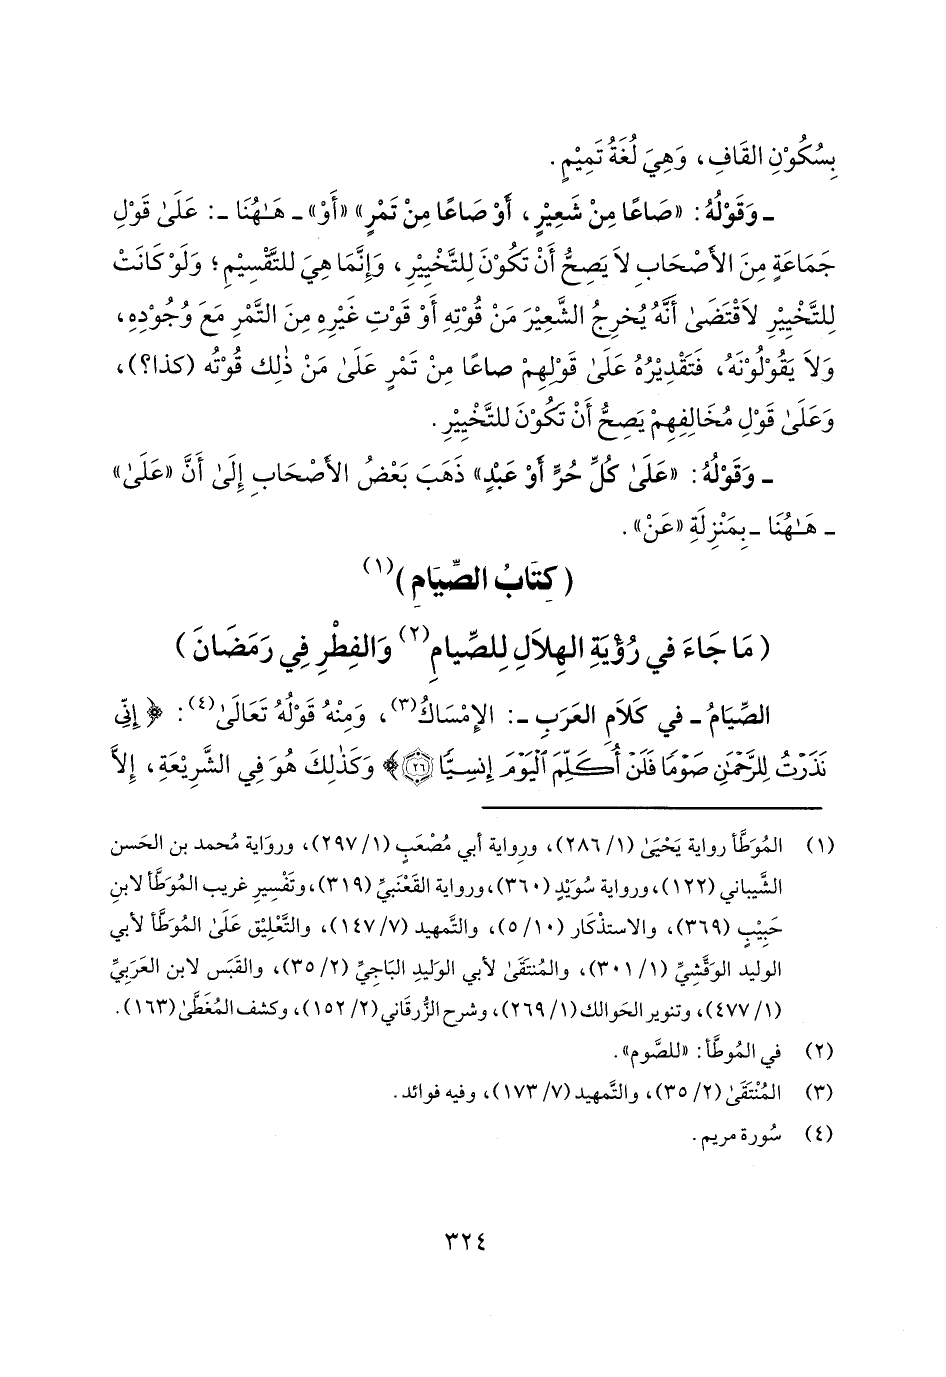 بِسُكُوْنِ القَافِ، وَهِيَ لُغَةُ تَمِيْمٍ.
ـ وَقَوْلُهُ: «صَاعًا مِنْ شَعِيْرٍ، أَوْ صَاعًا مِنْ تَمْرٍ» «أَوْ» ـ هَـٰهُنَا ـ: عَلَىٰ قَوْلِ
جَمَاعَةٍ مِنَ الأَصْحَابِ لاَ يَصِحُّ أَنْ تَكُوْنَ لِلتَّخْيِيْرِ، وَإِنَّمَا هِيَ للتَّقْسِيْمِ؛ وَلَوْ كَانَتْ
لِلتَّخْيِيْرِ لاَقْتَضَىٰ أَنَّهُ يُخرِجُ الشَّعِيْرَ مَنْ قُوْتِهِ أَوْ قَوْتِ غَيْرِهِ مِنَ التَّمْرِ مَعَ وُجُوْدِهِ،
وَلاَ يَقُوْلُوْنَهُ، فَتَقْدِيْرُهُ عَلَىٰ قَوْلِهِمْ صاعًا مِنْ تَمْرٍ عَلَىٰ مَنْ ذٰلِك قُوْتُه (كذا؟)،
وَعَلَىٰ قَوْلِ مُخَالِفِهِمْ يَصِحُّ أَنْ تَكُوْنَ للتَّخْيِيْرِ.
ـ وَقَوْلُهُ: «عَلَىٰ كُلِّ حُرٍّ أَوْ عَبْدٍ» ذَهَبَ بَعْضُ الأَصْحَابِ إِلَىٰ أَنَّ «عَلَىٰ»
ـ هَـٰهُنَا ـ بِمَنْزِلَةِ «عَنْ».
(كِتَابُ الصِّيَامِ)(١)
(مَا جَاءَ في رُؤْيَةِ الهِلَالِ لِلصِّيامِ(٢) وَالفِطْرِ فِي رَمَضَانَ)
الصِّيَامُ ـ في كَلَامِ العَرَبِ ـ: الإِمْسَاكُ(٣)، وَمِنْهُ قَوْلُهُ تَعَالَىٰ(٤): ﴿إِنِّي
نَذَرْتُ لِلرَّحْمَٰنِ صَوْمًا فَلَنْ أُكَلِّمَ ٱلْيَوْمَ إِنسِيًّا ٢٦﴾ وَكَذٰلِكَ هُوَ فِي الشَّرِيْعَةِ، إِلاَّ
(١) المُوَطَّأ رواية يَحْيَىٰ (١/ ٢٨٦)، ورواية أبي مُصْعَبٍ (١/ ٢٩٧)، وروَاية مُحمد بن الحَسن
الشَّيباني (١٢٢)، ورواية سُوَيْدٍ (٣٦٠)، ورواية القَعْنَبيِّ (٣١٩)، وتَفْسِير غريب المُوَطَّأ لابنِ
حَبِيْبٍ (٣٦٩)، والاستذْكار (١٠/ ٥)، والتَّمهيد (٧/ ١٤٧)، والتَّعْلِيْق عَلَىٰ المُوَطَّأ لأبي
الوليد الوَقَّشِيِّ (١/ ٣٠١)، والمُنتَقَىٰ لأبي الوَليدِ البَاجِيِّ (٢/ ٣٥)، والقَبَس لابن العَرَبِيِّ
(١/ ٤٧٧)، وتنوير الحَوالك (١/ ٢٦٩)، وشرح الزُّرقاني (٢/ ١٥٢)، وكشف المُغَطَّىٰ (١٦٣).
(٢) في المُوطَّأ: «للصَّوم».
(٣) المُنْتَقَىٰ (٢/ ٣٥)، والتَّمهيد (٧/ ١٧٣)، وفيه فوائد.
(٤) سُورة مريم.
٣٢٤